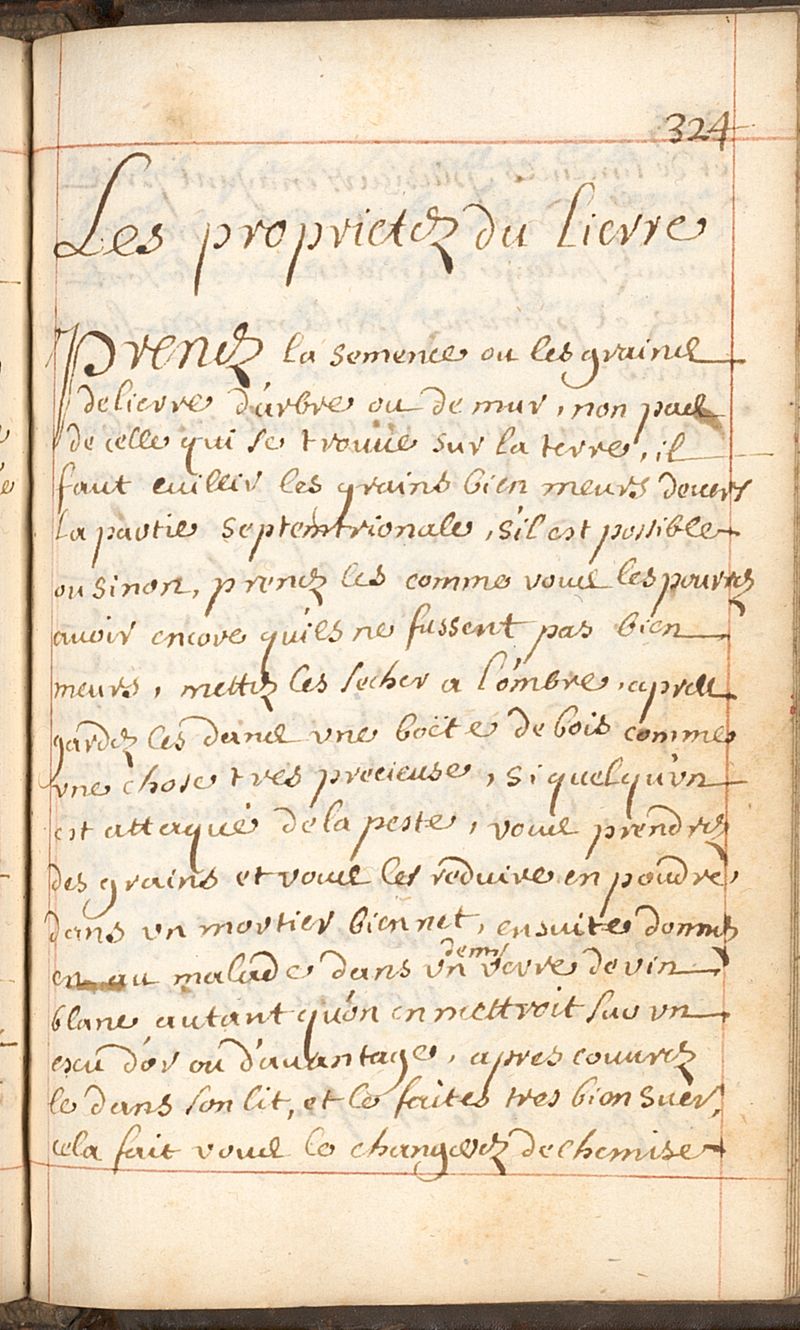 324
Les proprietez du lierre
Prenez la semence ou les graines
de lierre d'arbre ou de mur, non pas
de celle qui se trouue sur la terre, il
faut cuillir les grains bien meurs deuers
la partie septemtrionale, s'il est possible
ou sinon, prenez les comme vous les pourrez
auoir encore qu'ils ne fussent pas bien
meurs, mettez les secher a l'ombre, apres
gardez les dans vne boëte de bois comme
vne chose tres precieuse, si quelqu'vn
est attaqué de la peste, vous prendrez
des grains et vous les reduire en poudre
dans vn mortier bien net, ensuite donnez
en au malade dans vn demy verre de vin
blanc autant qu'on en mettroit sur vn
escu d'or ou d'auantage, apres couurez
le dans son lit, et le faites tres bien suer,
cela fait vous le changerez de chemise